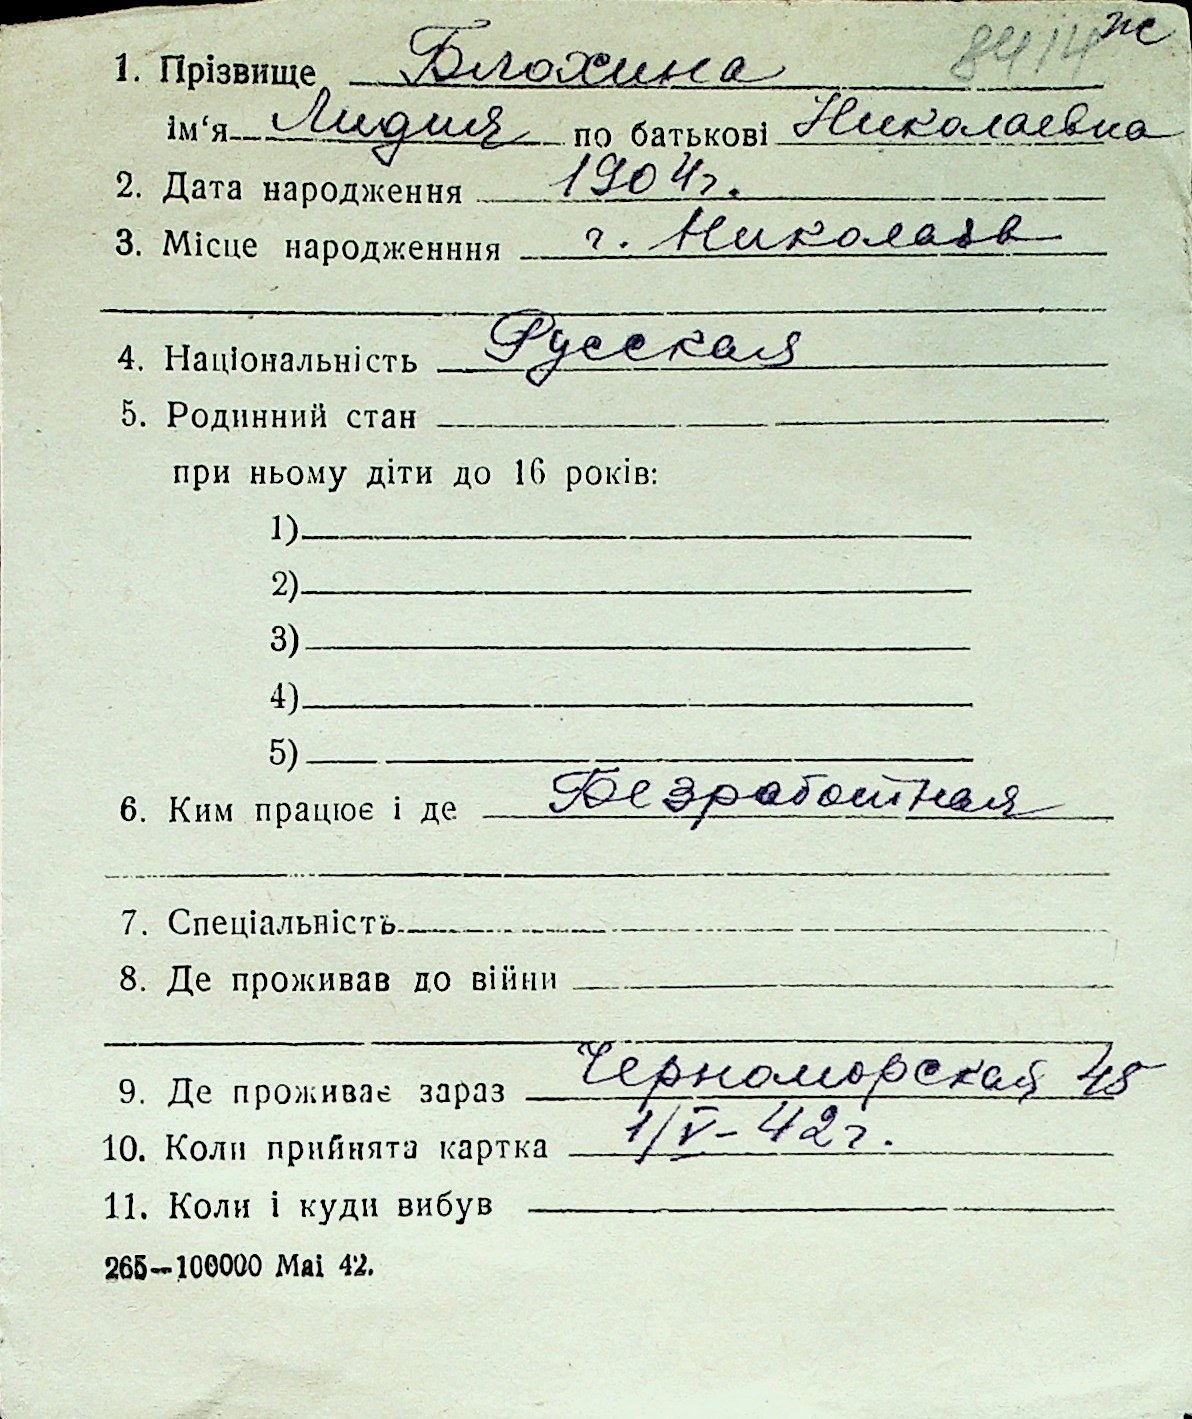 8414 ж
1. Прізвище Блохина
ім‘я Лидия по батькові Николаевна
2. Дата народження 1904 г.
3. Місце народженння г. Николаев
4. Національність Русская
5. Родинний стан
при ньому діти до 16 років:
1)
2)
3)
4)
5)
6. Ким працює і де Безработная
7. Спеціальність
8. Де проживав до війни
9. Де проживає зараз Черноморская 45
10. Коли прийнята картка 1/V-42 г.
11. Коли і куди вибув
265—100000 Mai 42.